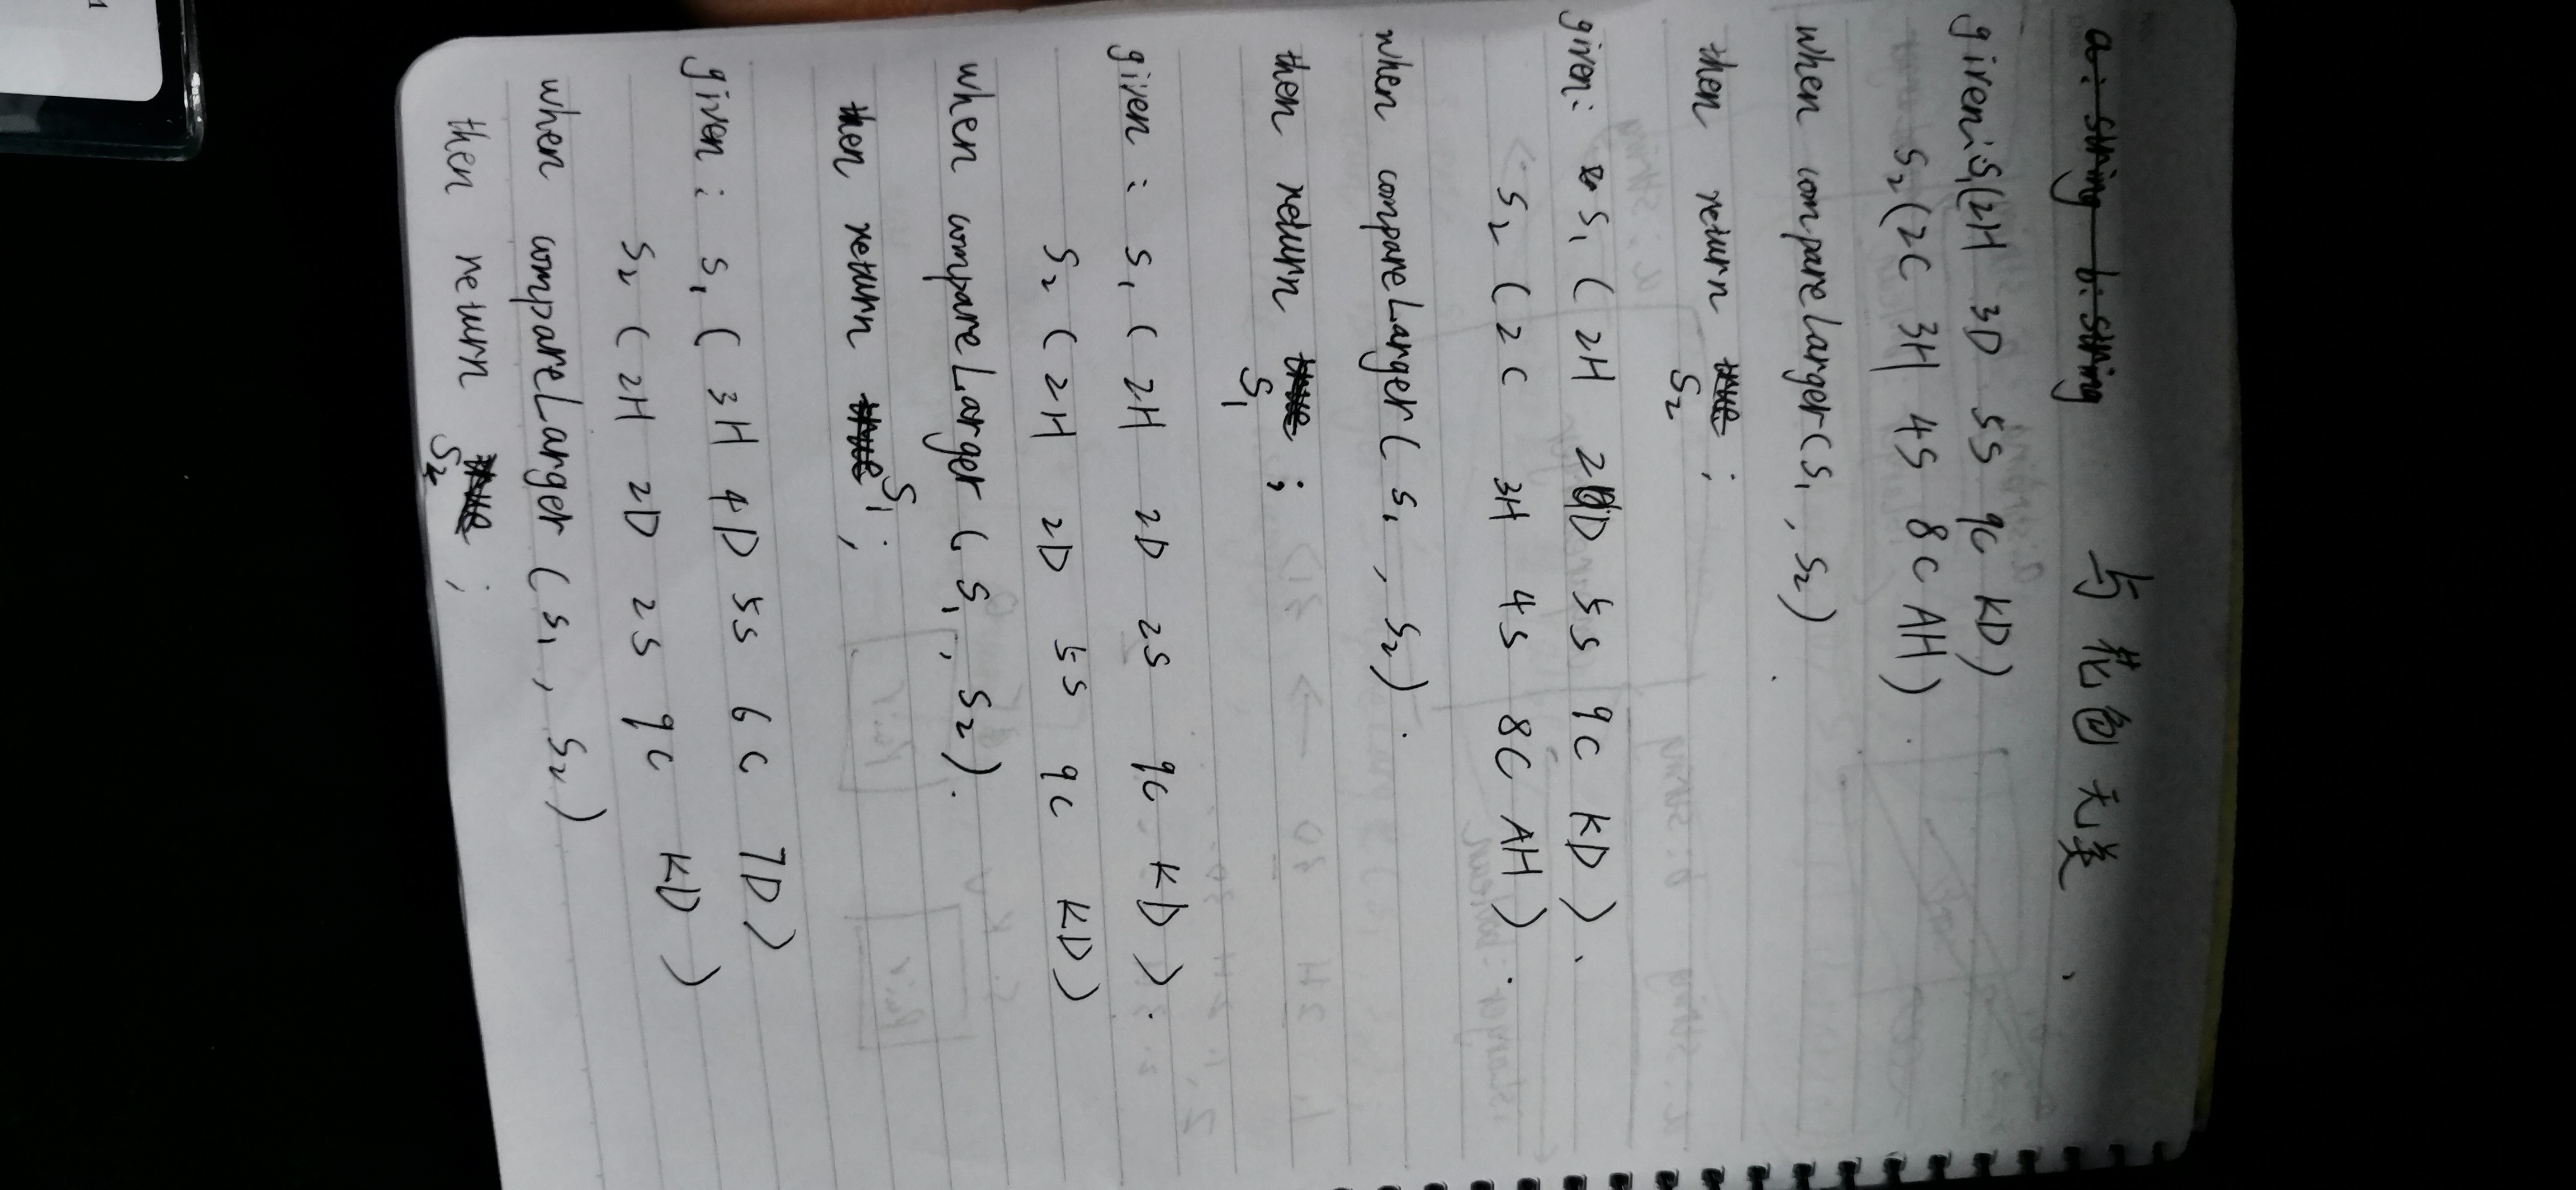 a: string b: string 与花色无关.
given: S1(2H 3D 5S 9C KD)
S2(2C 3H 4S 8C AH).
when compareLarger(S1, S2).
then return true;
S2
given: S1(2H 2D 5S 9C KD).
S2(2C 3H 4S 8C AH).
when compareLarger(S1, S2).
then return true;
S1
given: S1(2H 2D 2S 9C KD).
S2(2H 2D 5S 9C KD)
when compareLarger(S1, S2).
then return true S1;
given: S1(3H 4D 5S 6C 7D)
S2(2H 2D 2S 9C KD)
when compareLarger(S1, S2)
then return true;
S2